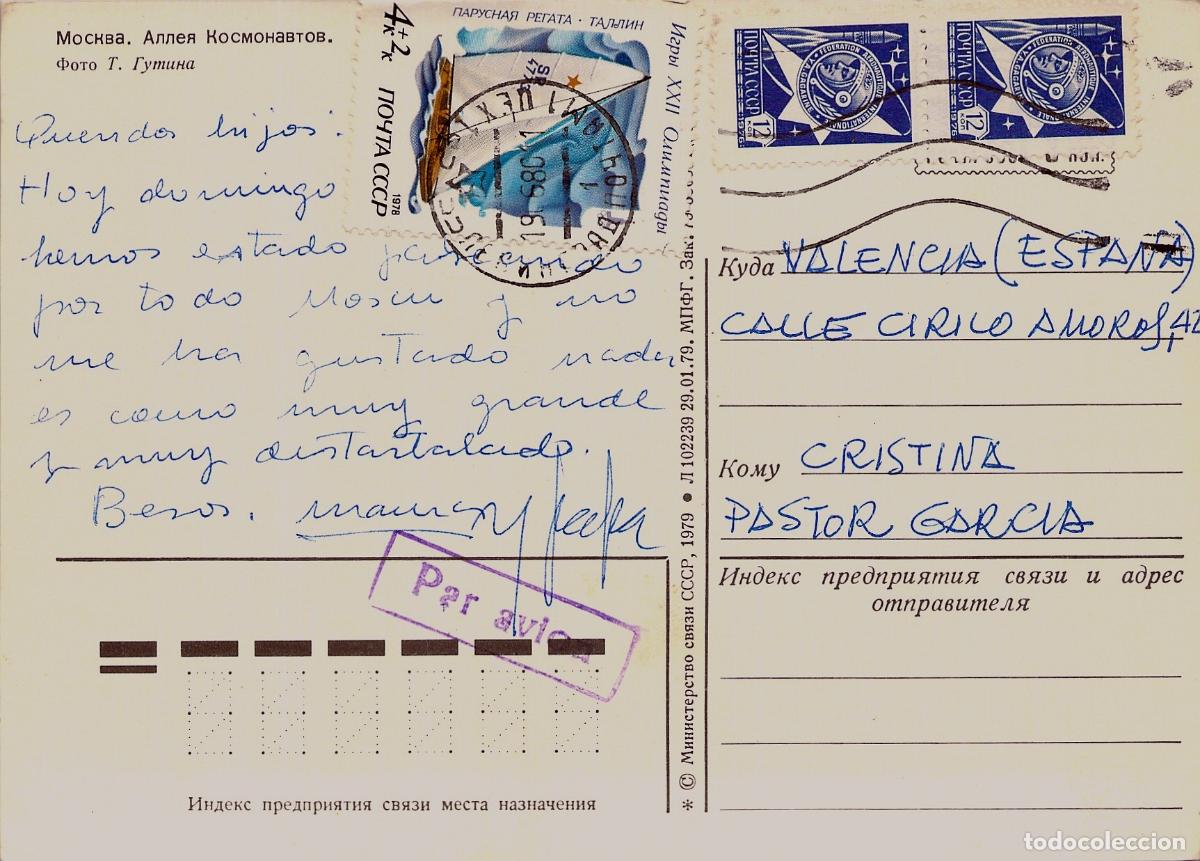 Москва. Аллея Космонавтов.
Фото Т. Гутина
Queridos hijos:
Hoy domingo
hemos estado paseando
por todo Moscu y no
me ha gustado nada
es como muy grande
y muy destartalado.
Besos.
Par avion
Индекс предприятия связи места назначения
4к+2к
ПОЧТА СССР
1978
ПАРУСНАЯ РЕГАТА · ТАЛЛИН
Игры XXII Олимпиады
ПОЧТА СССР
12 коп
1976
FEDERATION AERONAUTIQUE INTERNATIONALE
Y.A. GAGARINE
ПОЧТА СССР
12 коп
1976
FEDERATION AERONAUTIQUE INTERNATIONALE
Y.A. GAGARINE
* © Министерство связи СССР, 1979 ● Л 102239 29.01.79. МПФГ. Зак.
Куда VALENCIA (ESPAÑA)
CALLE CIRILO AMOROS, 42
Кому CRISTINA
PASTOR GARCIA
Индекс предприятия связи и адрес
отправителя
todocoleccion.net